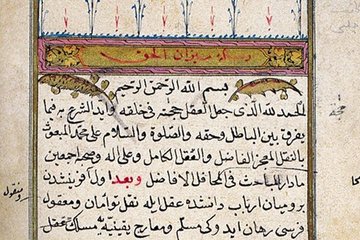 رساله میزان الحق
بسم الله الرحمن الرحیم
الحمد لله الذی جعل العقل حجته فی خلقه واید الشرع به فیما
یفرق بین الباطل وحقه والصلوة والسلام علی محمد المبعوث
بالنقل المحجز الفاضل والعقل الکامل وعلی اله وصحبه اجمعین
مادار المباحث فی المحافل الافاضل وبعد اول آفرینشدن
برو میان ارباب دانشده عقل ایله نقل توأمان ومعقول
ومنقول
فرسی رهان اید وکی مسلم ومعارج یقینیه مسلک عقل